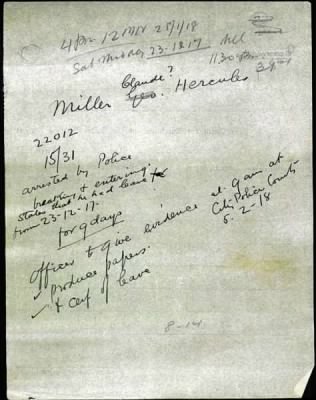 4 pm 12 MN 25/1/18
Sat Midday 23-12-17
11.30 pm
Claude?
Miller Geo. Hercules
22012
15/31
arrested by Police
breaking & entering.
states that he had leave
from 23-12-17.
for 9 days
Officer to give evidence at 9 am at
City Police Courts
5-2-18
✓ Produce papers.
✓ & cert of leave
8-14